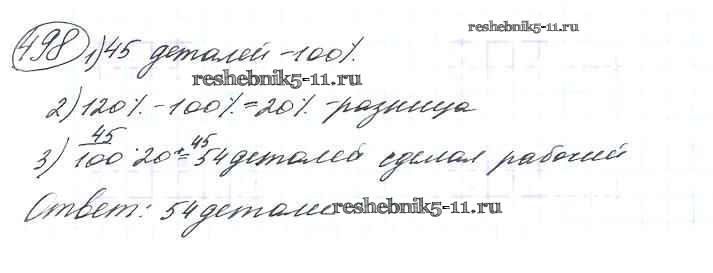 reshebnik5-11.ru
498 1) 45 деталей - 100%.
reshebnik5-11.ru
2) 120% - 100% = 20% - разница
3) 45/100 · 20 + 45 = 54 деталей сделал рабочий
Ответ: 54 детали
reshebnik5-11.ru